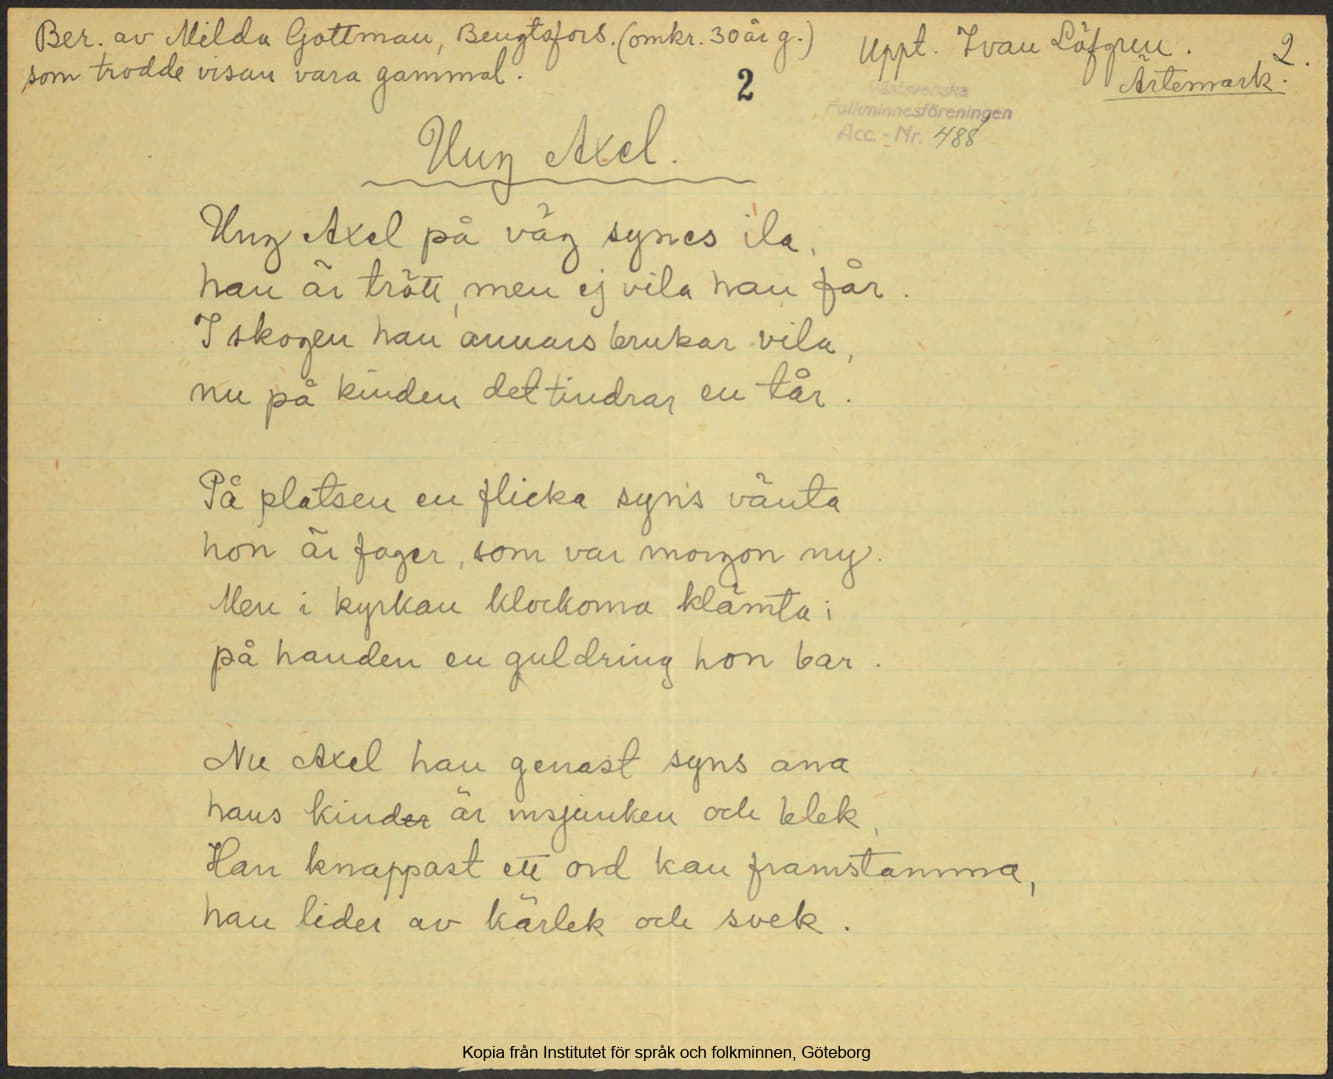 Ber. av Milda Gottman, Bengtsfors. (omkr. 30 år g.)
som trodde visan vara gammal.
Uppt. Ivan Löfgren.
2.
Ärtemark.
2
Västsvenska
Folkminnesföreningen
Acc.-Nr. 488
Ung Axel.
Ung Axel på väg synes ila,
han är trött, men ej vila han får.
I skogen han annars brukar vila,
nu på kinden det tindrar en tår.
På platsen en flicka syns vänta
hon är fager, som var morgon ny.
Men i kyrkan klockorna klämta;
på handen en guldring hon bar.
Nu Axel han genast syns ana
hans kinder är insjunken och blek,
Han knappast ett ord kan framstamma,
han lider av kärlek och svek.
Kopia från Institutet för språk och folkminnen, Göteborg